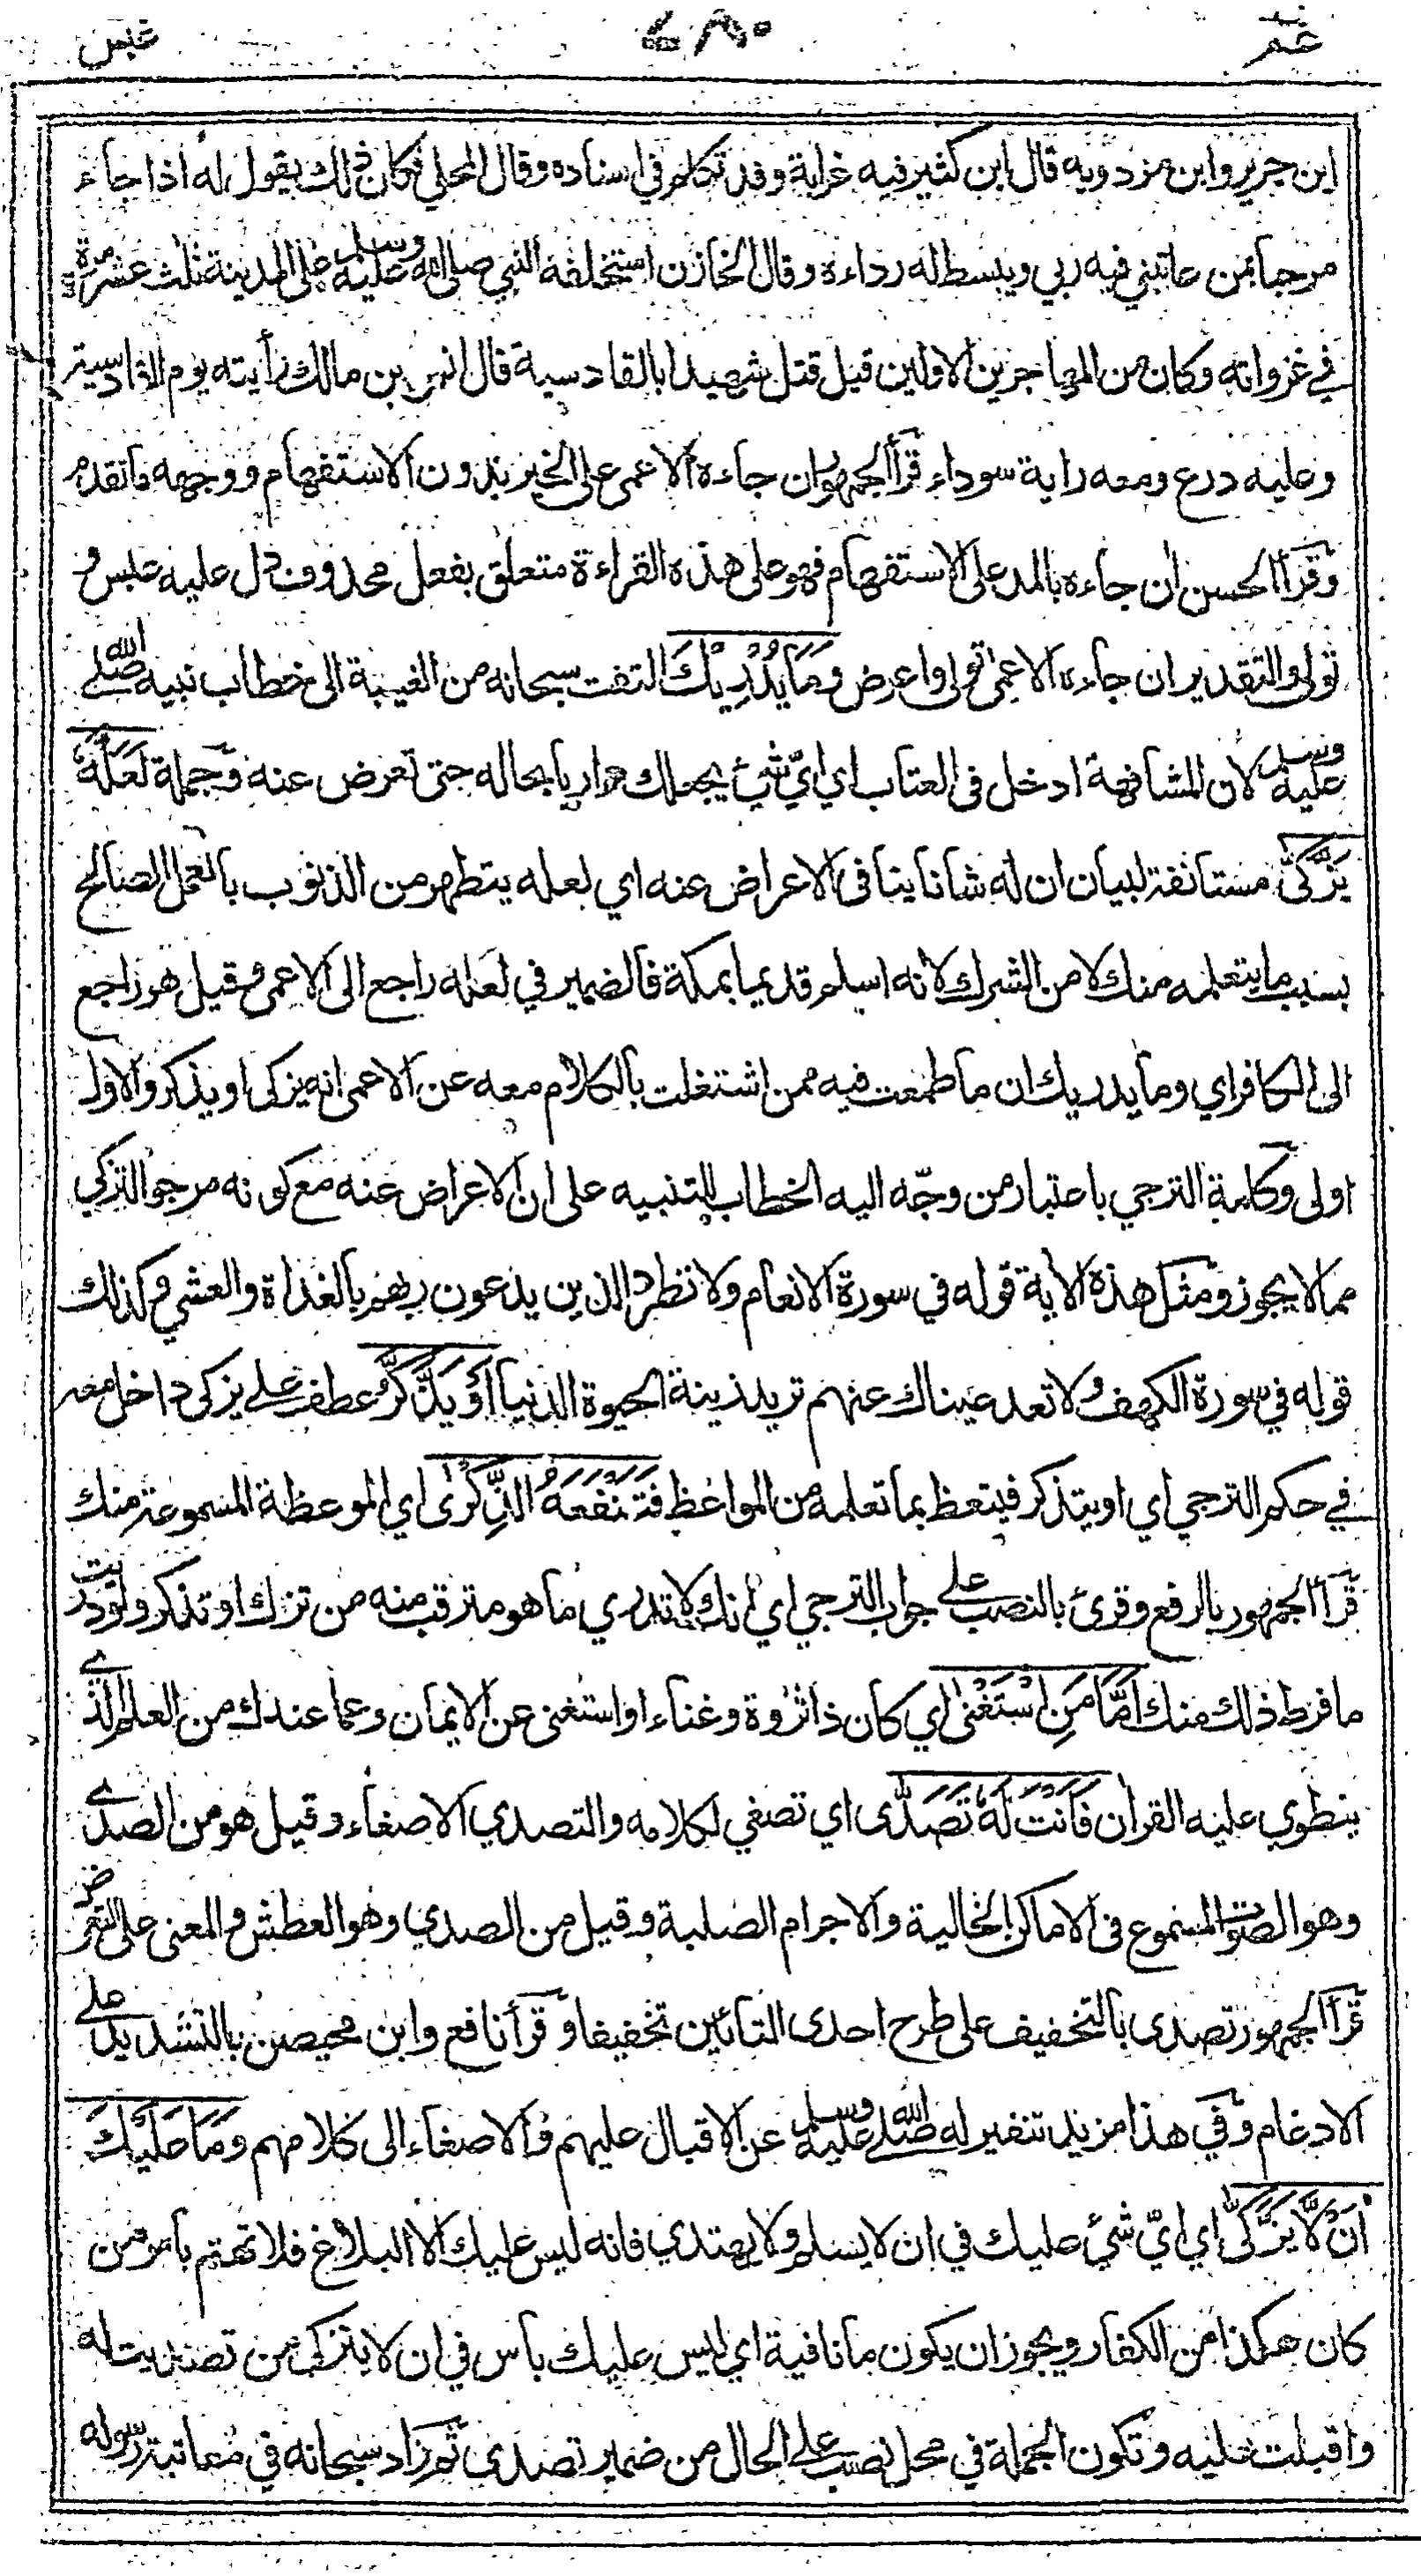 عم ٢٨٠ عبس
ابن جرير وابن مردويه قال ابن كثير فيه غرابة وقد تكلم في اسناده وقال المحلي فكان بعد ذلك يقول له اذا جاء
مرحبا بمن عاتبني فيه ربي ويبسط له رداءه وقال الخازن استخلفه النبي صلى الله عليه وسلم على المدينة ثلث عشرة مرة
في غزواته وكان من المهاجرين الاولين قيل قتل شهيدا بالقادسية قال انس بن مالك رأيته يوم القادسية
وعليه درع ومعه راية سوداء قرأ الجمهور ان جاءه الاعمى على الخبر بدون الاستفهام ووجهه ما تقدم
وقرأ الحسن اٰن جاءه بالمد على الاستفهام فهو على هذه القراءة متعلق بفعل محذوف دل عليه عبس و
تولى والتقدير ان جاءه الاعمى تولى واعرض وَمَا يُدْرِيْكَ التفت سبحانه من الغيبة الى خطاب نبيه صلى الله
عليه وسلم لان المشافهة ادخل في العتاب اي ايّ شيء يجعلك داريا بحاله حتى تعرض عنه وجملة لَعَلَّهُ
يَزَّكّٰى مستأنفة لبيان ان له شانا ينافي الاعراض عنه اي لعله يتطهر من الذنوب بالعمل الصالح
بسبب ما يتعلمه منك لا من الشرك لأنه اسلم قديما بمكة فالضمير في لعله راجع الى الاعمى وقيل هو راجع
الى الكافر اي وما يدريك ان ما طمعت فيه ممن اشتغلت بالكلام معه عن الاعمى انه يزكى او يذكر والاول
اولى وكلمة الترجي باعتبار من وجّه اليه الخطاب للتنبيه على ان الاعراض عنه مع كونه مرجو التزكي
مما لا يجوز ومثل هذه الاية قوله في سورة الانعام ولا تطرد الذين يدعون ربهم بالغداة والعشي وكذلك
قوله في سورة الكهف ولا تعد عيناك عنهم تريد زينة الحيوة الدنيا اَوْ يَذَّكَّرُ عطف على يزكى داخل معه
في حكم الترجي اي او يتذكر فيتعظ بما تعلمه من المواعظ فَتَنْفَعَهُ الذِّكْرٰى اي الموعظة المسموعة منك
قرأ الجمهور بالرفع وقرئ بالنصب على جواب الترجي اي انك لا تدري ما هو مترقب منه من تزك او تذكر ولو دريت
ما فرط ذلك منك اَمَّا مَنِ اسْتَغْنٰى اي كان ذا ثروة وغناء او استغنى عن الايمان وعما عندك من العلم الذي
ينطوي عليه القرآن فَاَنْتَ لَهٗ تَصَدّٰى اي تصغي لكلامه والتصدي الاصغاء وقيل هو من الصدى
وهو الصوت المسموع في الاماكن الخالية والاجرام الصلبة وقيل من الصدي وهو العطش والمعنى على التعرض
قرأ الجمهور تصدى بالتخفيف على طرح احدى التائين تخفيفا وقرأ نافع وابن محيصن بالتشديد على
الادغام وفي هذا مزيد تنفير له صلى الله عليه وسلم عن الاقبال عليهم والاصغاء الى كلامهم وَمَا عَلَيْكَ
اَنْ لَّا يَزَّكّٰى اي ايّ شيء عليك في ان لا يسلم ولا يهتدي فانه ليس عليك الا البلاغ فلا تهتم بأمر من
كان هكذا من الكفار ويجوز ان يكون ما نافية اي ليس عليك بأس في ان لا يتزكى من تصديت له
واقبلت عليه وتكون الجملة في محل نصب على الحال من ضمير تصدى ثم زاد سبحانه في معاتبة رسوله